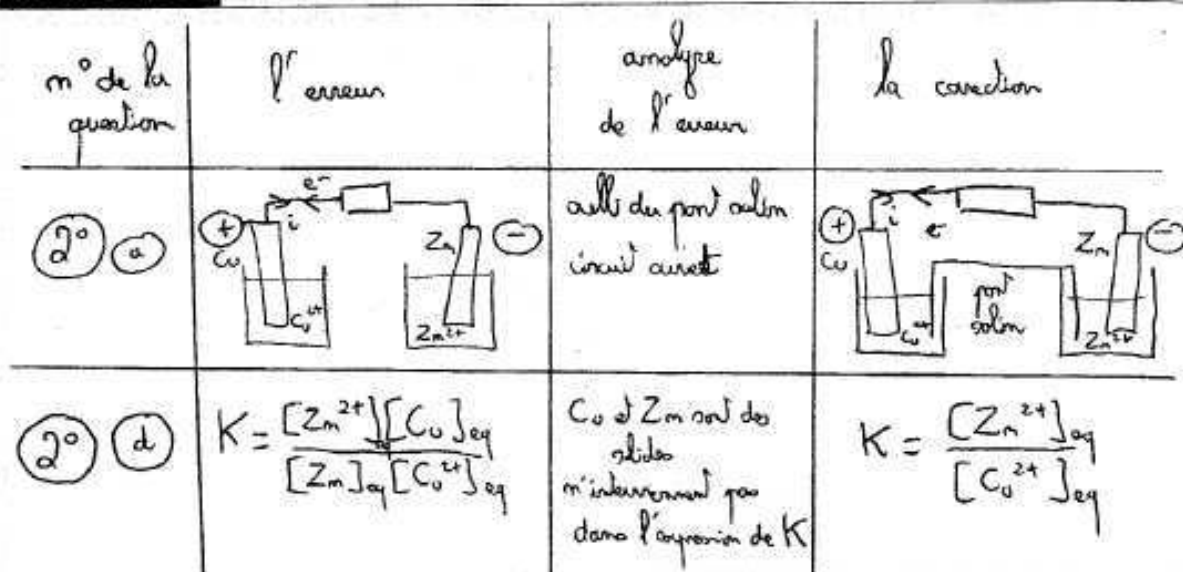 n° de la
question
l'erreur
analyse
de l'erreur
la correction
2° a
e-
i
+
Cu
Zn
-
Cu²⁺
Zn²⁺
oubli du pont salin
circuit ouvert
e-
i
+
Cu
Zn
-
pont
salin
Cu²⁺
Zn²⁺
2° d
K = [Zn²⁺]eq [Cu]eq / [Zn]eq [Cu²⁺]eq
Cu et Zn sont des
solides
n'interviennent pas
dans l'expression de K
K = [Zn²⁺]eq / [Cu²⁺]eq